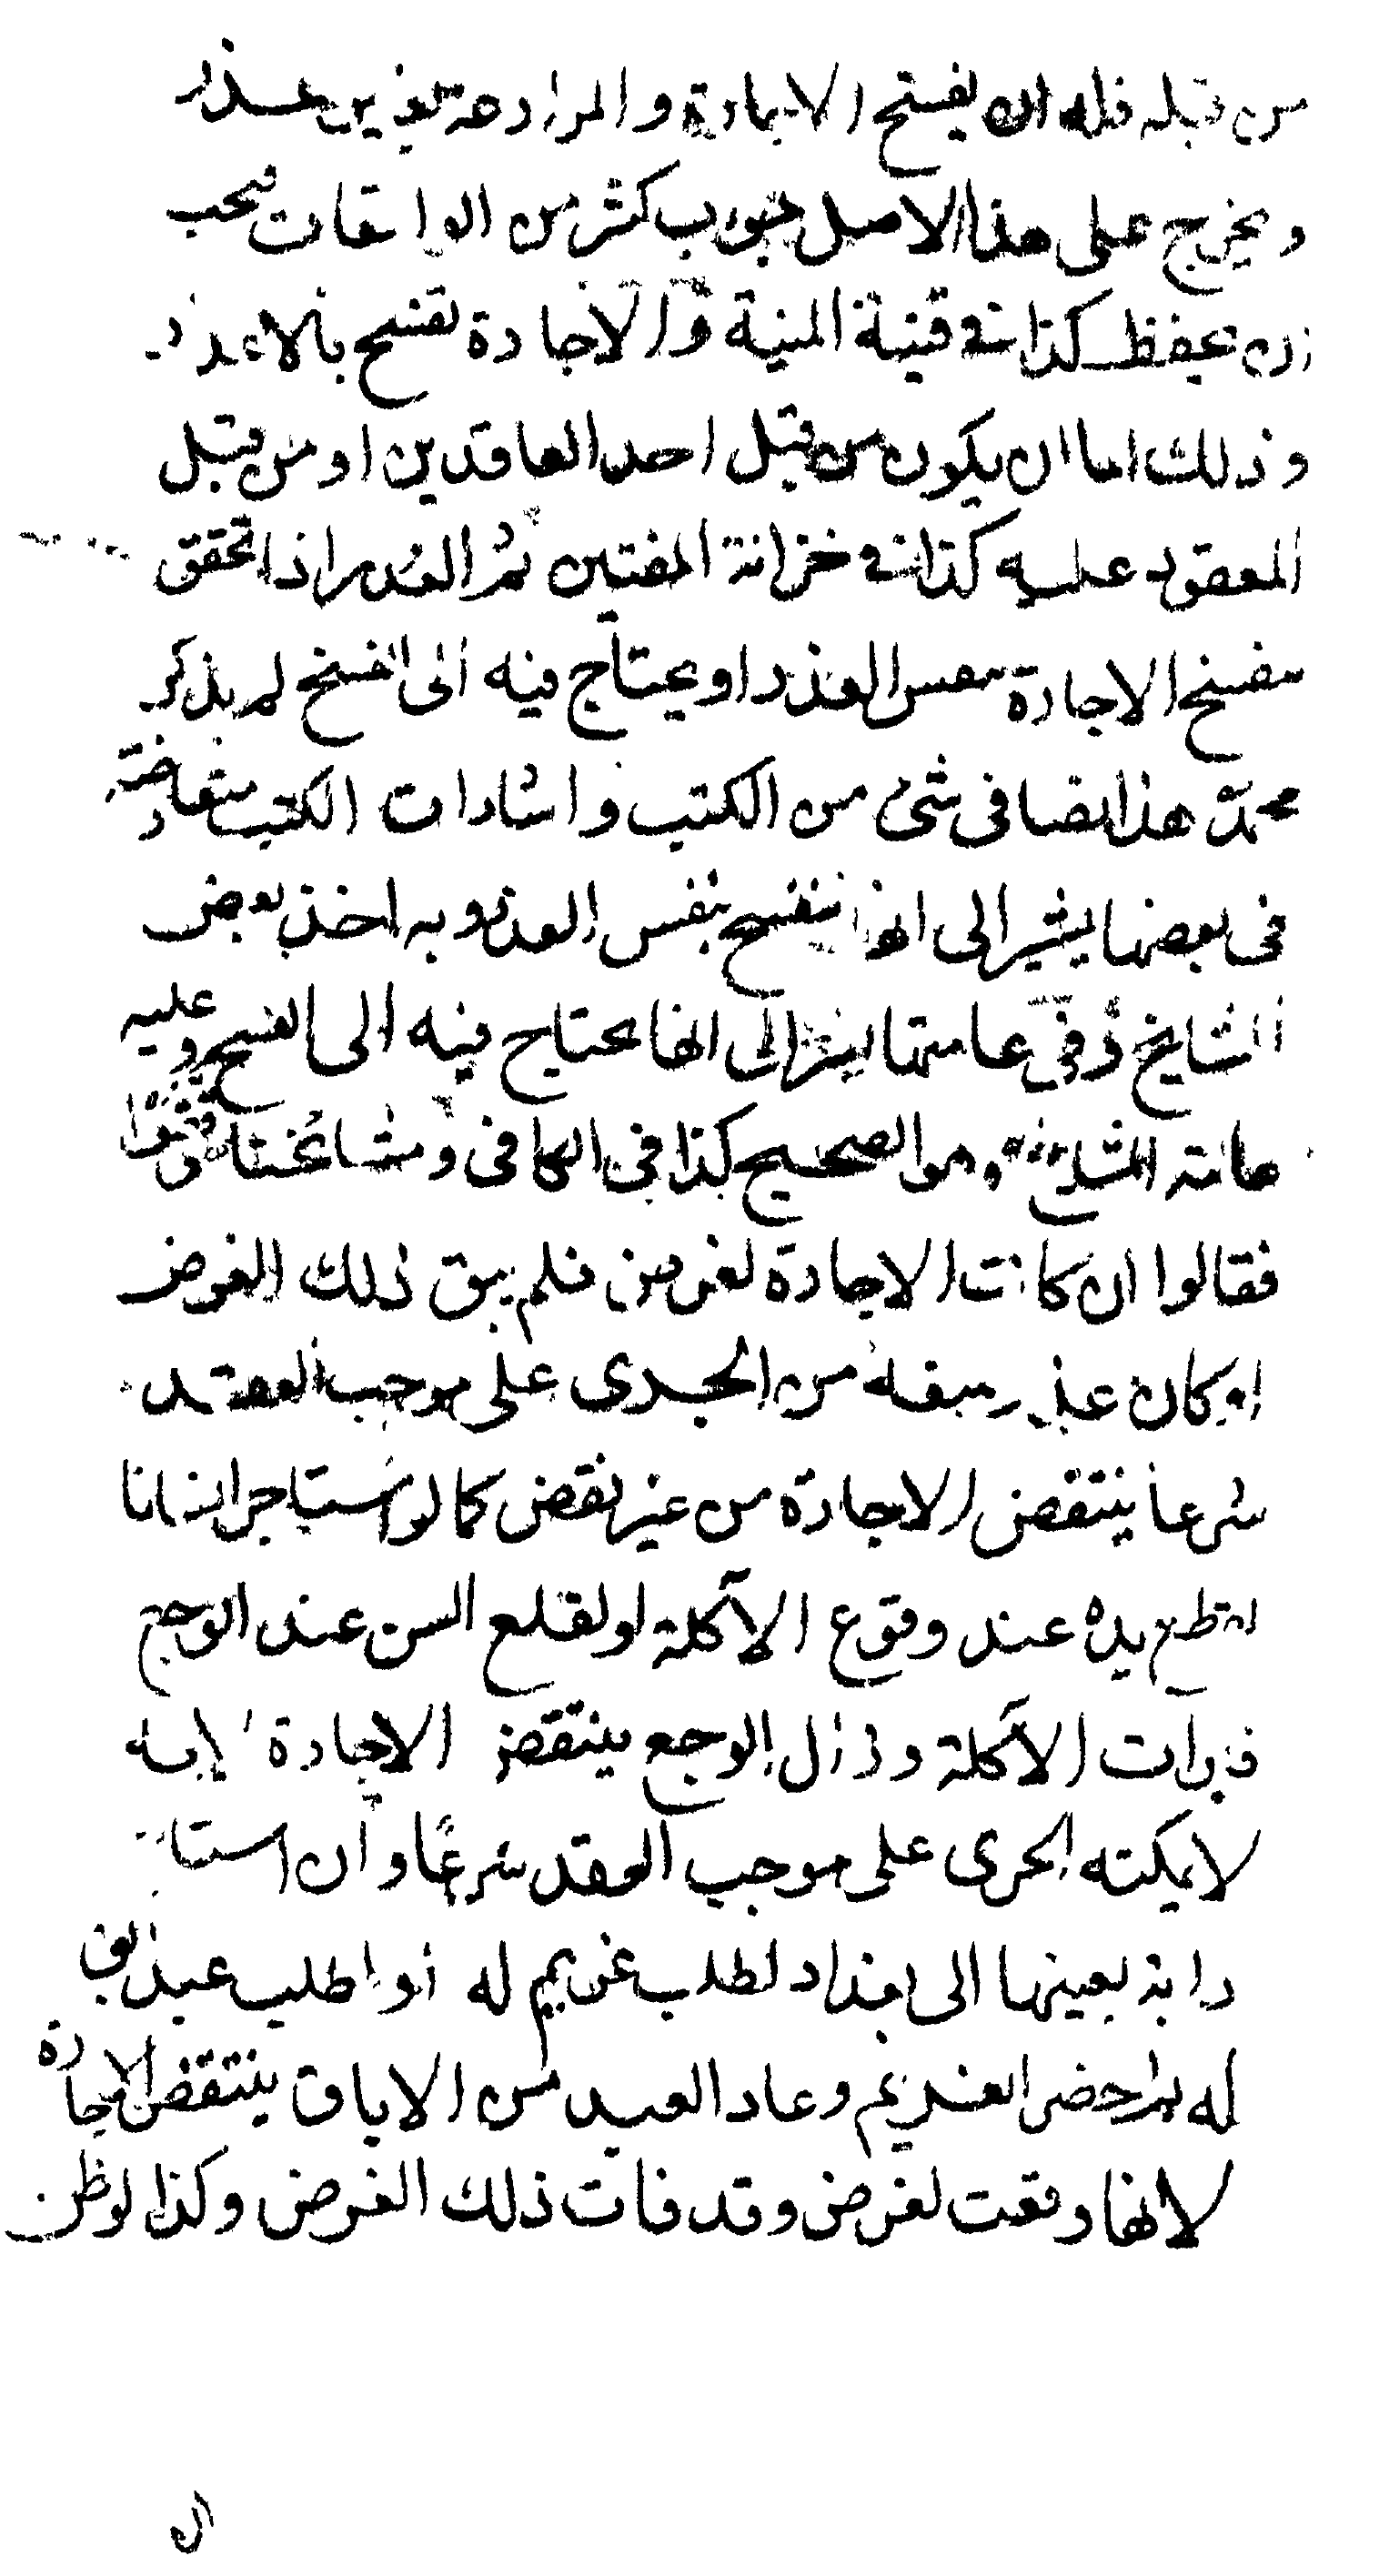 من قبله فله ان يفسخ الاجارة والمزارعة بغير عذر
ويخرج على هذا الاصل جواب كثير من الواقعات فيجب
ان يحفظ كذا في قنية المنية والاجارة تفسخ بالاعذار
وذلك اما ان يكون من قبل احد العاقدين او من قبل
المعقود عليه كذا في خزانة المفتين ثم العذر اذا تحقق
ينفسخ الاجارة بنفس العذر او يحتاج فيه الى الفسخ لم يذكر
محمد هذا ايضا في شئ من الكتب واشارات الكتب متعارضة
في بعضها يشير الى انها تنفسخ بنفس العذر وبه اخذ بعض
المشايخ وفي عامتها يشير الى انها يحتاج فيه الى الفسخ وعليه
عامة المشايخ وهو الصحيح كذا في الكافي ومشائخنا وفقوا
فقالوا ان كانت الاجارة لغرض فلم يبق ذلك الغرض
او كان عذر يمنعه من الجرى على موجب العقد
شرعا ينتقض الاجارة من غير نقض كما لو استاجر انسانا
لقطع يده عند وقوع الآكلة او لقلع السن عند الوجع
فبرات الآكلة وزال الوجع ينتقض الاجارة لانه
لا يمكنه الجرى على موجب العقد شرعا وان استا
دابة بعينها الى بغداد لطلب غريم له او لطلب عبد ابق
له ثم احضر الغريم وعاد العبد من الاباق ينتقض الاجارة
لانها وقعت لغرض وقد فات ذلك الغرض وكذا لو ظن